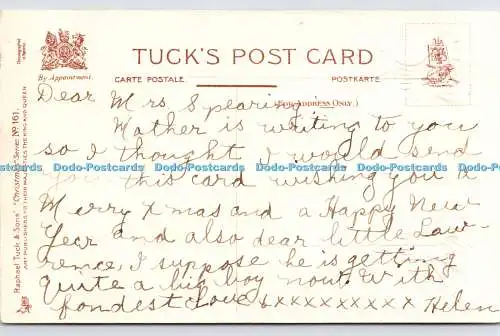 TUCK'S POST CARD
By Appointment.
CARTE POSTALE
POSTKARTE
(FOR ADDRESS ONLY.)
Raphael Tuck & Sons' "Christmas" Series Nº 161.
ART PUBLISHERS TO THEIR MAJESTIES THE KING AND QUEEN
Dear Mrs Spearing
Mother is writing to you
so I thought I would send
you this card wishing you a
Merry Xmas and a Happy New
Year and also dear little Law-
rence, I suppose he is getting
quite a big boy now. With
fondest Love 6xxxxxxxxxx Helen
Dodo-Postcards Dodo-Postcards Dodo-Postcards Dodo-Postcards Dodo-Postcards